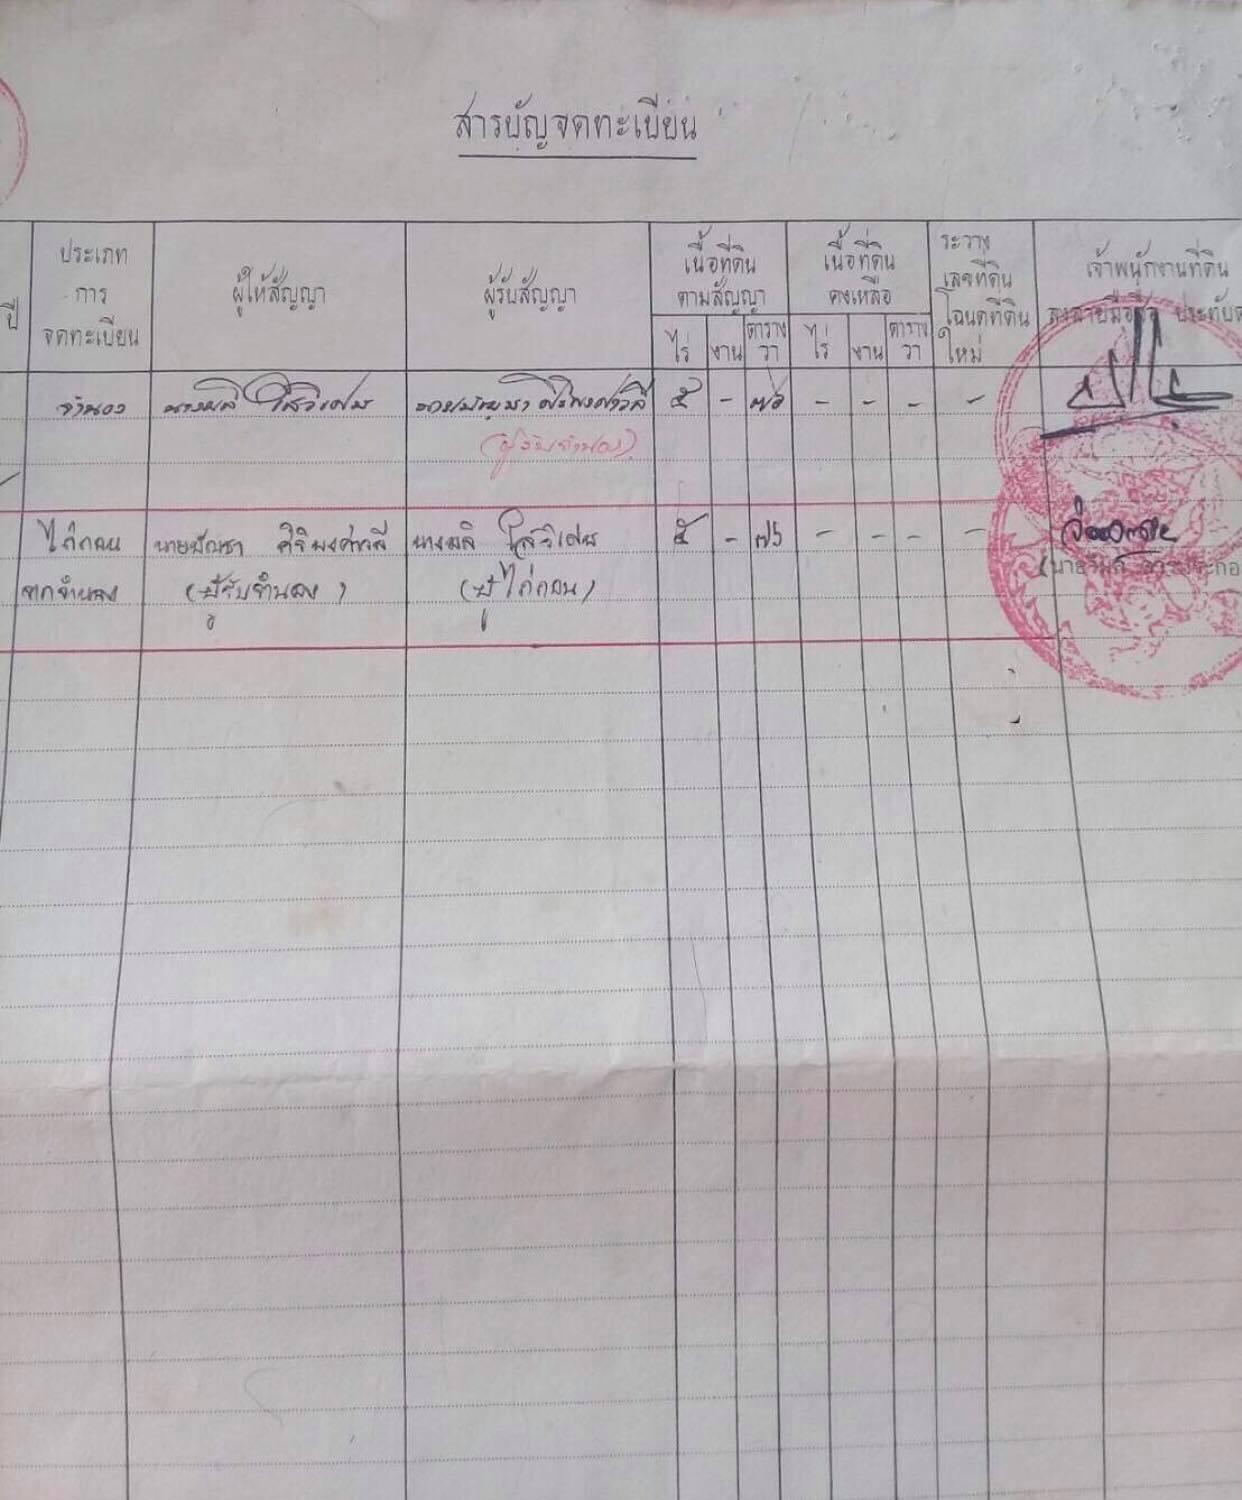 สารบัญจดทะเบียน
ปี
ประเภท
การ
จดทะเบียน
ผู้ให้สัญญา
ผู้รับสัญญา
เนื้อที่ดิน
ตามสัญญา
ไร่ งาน ตาราง
วา
เนื้อที่ดิน
คงเหลือ
ไร่ งาน ตาราง
วา
ระวาง
เลขที่ดิน
โฉนดที่ดิน
ใหม่
เจ้าพนักงานที่ดิน
ลงลายมือชื่อ ประทับต
จำนอง นางมลิ ๕ - ๗๖ - - - -
(ผู้รับจำนอง)
ไถ่ถอน นายบัญชา นางมลิ ๕ - ๗๖ - - - -
จากจำนอง (ผู้รับจำนอง) (ผู้ไถ่ถอน)